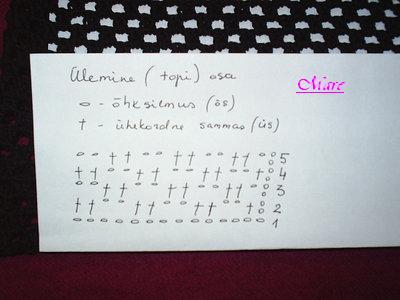 Ülemine (topi) osa
Mare
o - õhksilmus (õs)
† - ühekordne sammas (üs)
5
4
3
2
1